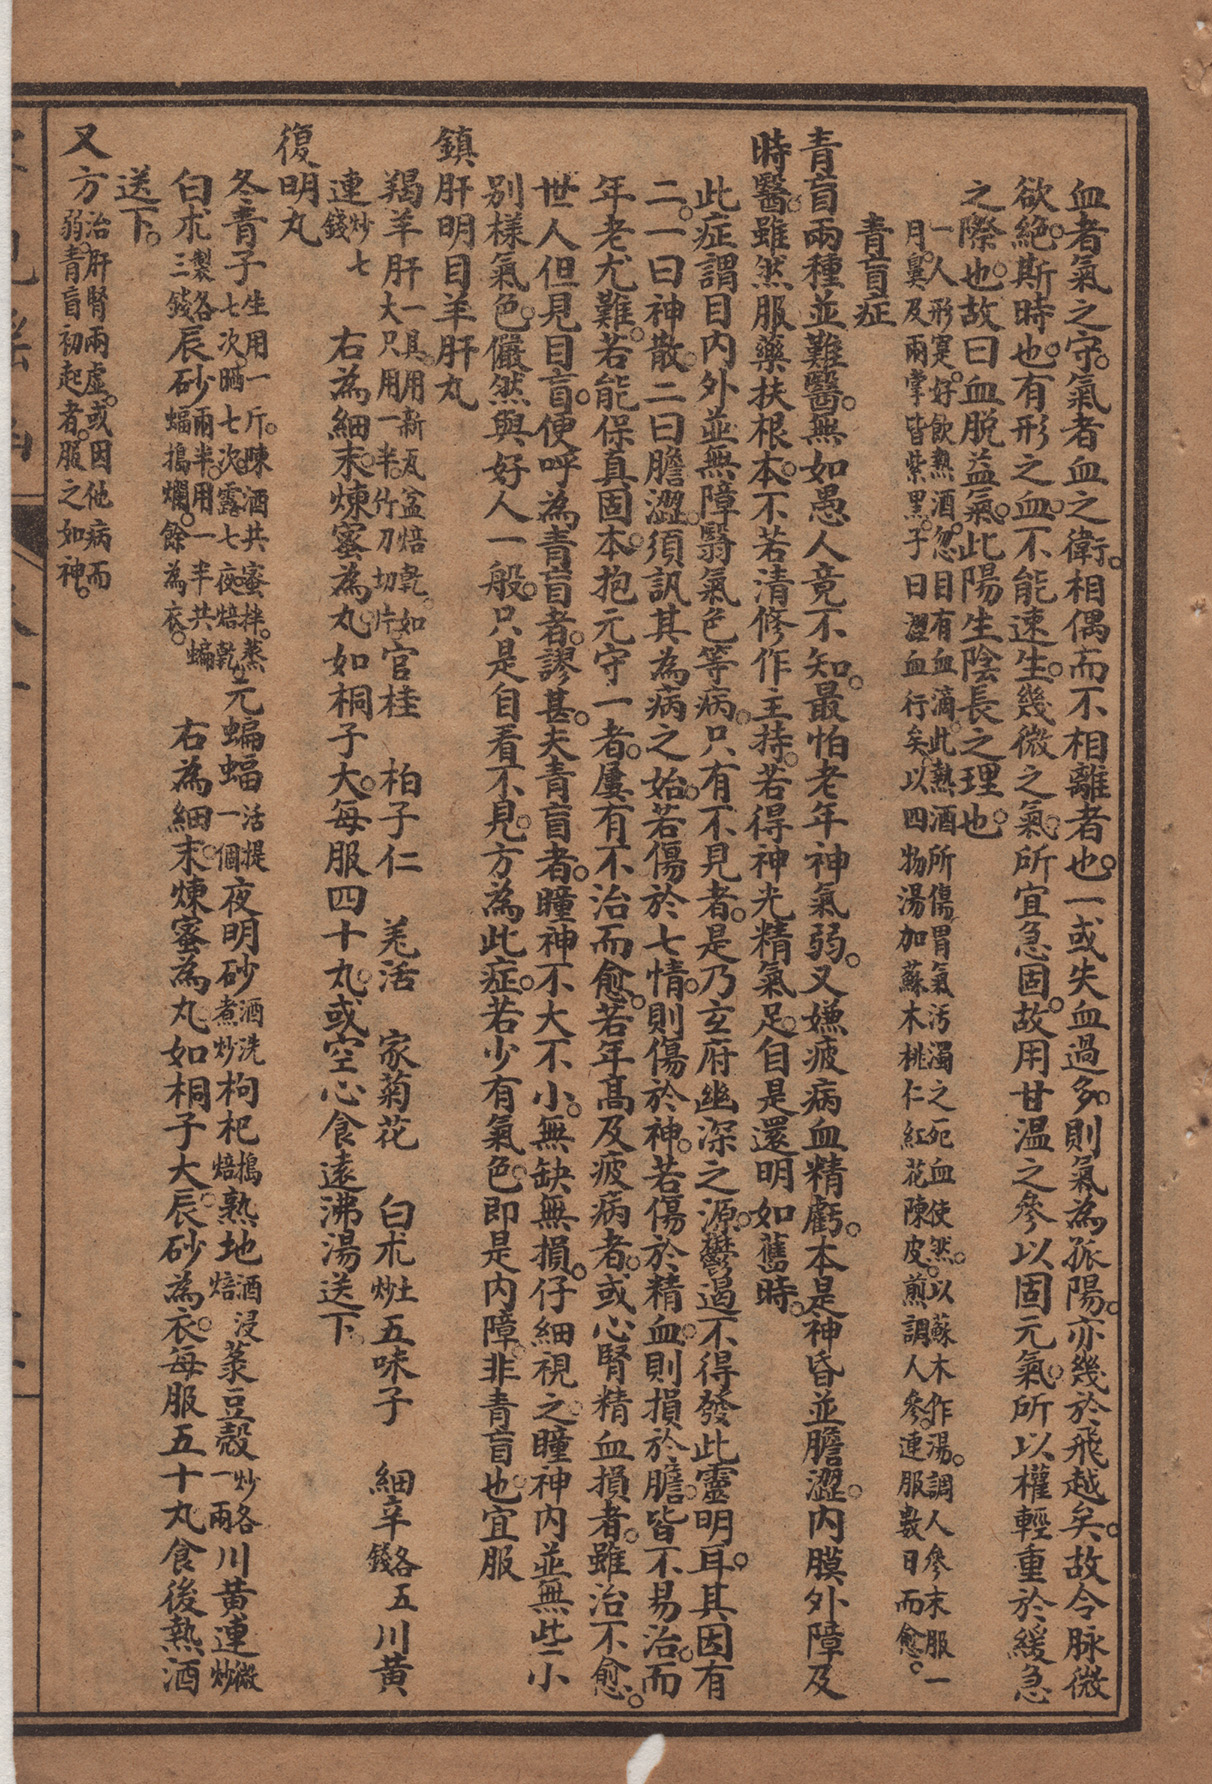 血者氣之守。氣者血之衛。相偶而不相離者也。一或失血過多。則氣為孤陽。亦幾於飛越矣。故令脉微
欲絕。斯時也。有形之血。不能速生。幾微之氣。所宜急固。故用甘温之參以固元氣。所以權輕重於緩急
之際也。故曰血脱益氣。此陽生陰長之理也。
一人形寔。好飲熱酒。忽目有血滴。此熱酒所傷。胃氣汚濁之死血使然。以蘇木作湯。調人參末服一
月。鼻及兩掌皆紫黑。子曰澀血行矣。以四物湯加蘇木桃仁紅花陳皮。煎調人參。連服數日而愈。
青盲症
青盲兩種並難醫。無如愚人竟不知。最怕老年神氣弱。又嫌疲病血精虧。本是神昏並膽澀。內膜外障及
時醫。雖然服藥扶根本。不若清修作主持。若得神光精氣足。自是還明如舊時。
此症謂目內外並無障翳氣色等病。只有不見者。是乃玄府幽深之源。鬱遏不得發此靈明耳。其因有
二。一曰神散。二曰膽澀。須訊其為病之始。若傷於七情。則傷於神。若傷於精血。則損於膽。皆不易治。而
年老尤難。若能保真固本。抱元守一者。屢有不治而愈。若年高及疲病者。或心腎精血損者。雖治不愈。
世人但見目盲。便呼為青盲者。謬甚。夫青盲者。瞳神不大不小。無缺無損。仔細視之。瞳神內並無些小
別樣氣色。儼然與好人一般。只是自看不見。方為此症。若少有氣色。即是內障。非青盲也。宜服
鎮肝明目羊肝丸
羯羊肝一具。用新瓦盆焙乾。如大只用一半。竹刀切片 官桂 柏子仁 羌活 家菊花 白朮土炒 五味子 細辛各五錢 川黃
連炒七錢 右為細末。煉蜜為丸。如桐子大。每服四十丸。或空心食遠。沸湯送下。
復明丸
冬青子生用一斤。陳酒共蜜拌。蒸七次。晒七次。露七夜。焙乾 元蝙蝠一個活提 夜明砂酒洗煮炒 枸杞搗焙 熟地酒浸焙 菉豆殼炒各一兩 川黃連微炒
白朮製各三錢 辰砂兩半用一半共蝙蝠搗爛。餘為衣。 右為細末。煉蜜為丸。如桐子大。辰砂為衣。每服五十丸。食後熱酒
送下。
又方治肝腎兩虛。或因他病而弱。青盲初起者。服之如神。